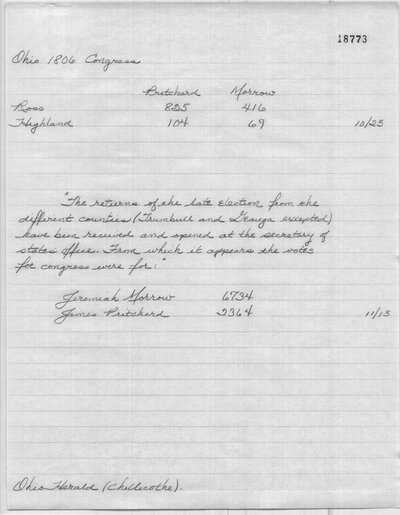 18773
Ohio 1806 Congress
Pritchard Morrow
Ross 835 416
Highland 104 69 10/25
"The returns of the late election from the
different counties (Trumbull and Geauga excepted)
have been received and opened at the secretary of
states office. From which it appears the votes
for congress were for:"
Jeremiah Morrow 6734
James Pritchard 2364 11/15
Ohio Herald (Chillicothe).